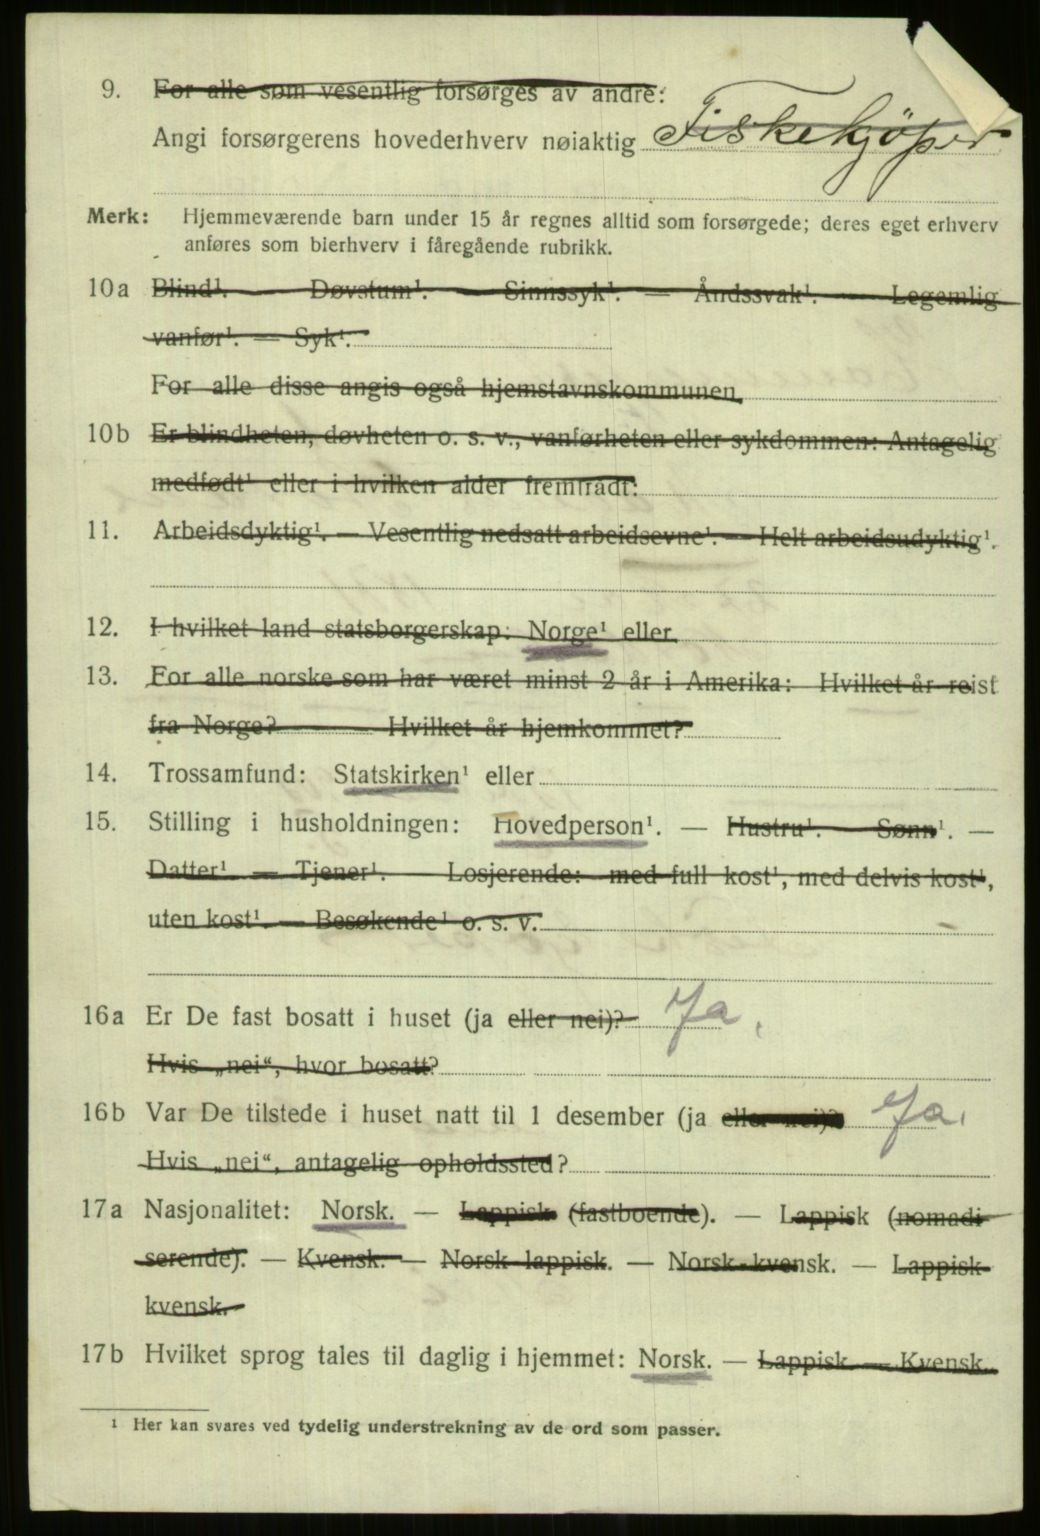 9. For alle som vesentlig forsørges av andre:
Angi forsørgerens hovederhverv nøiaktig Fiskekjöper
Merk: Hjemmeværende barn under 15 år regnes alltid som forsørgede; deres eget erhverv
anføres som bierhverv i føregående rubrikk.
10a Blind¹. — Døvstum¹. — Sinnssyk¹. — Åndssvak¹. — Legemlig
vanfør¹. — Syk¹.
For alle disse angis også hjemstavnskommunen
10b Er blindheten, døvheten o. s. v., vanførheten eller sykdommen: Antagelig
medfødt¹ eller i hvilken alder fremtrådt:
11. Arbeidsdyktig¹. — Vesentlig nedsatt arbeidsevne¹. — Helt arbeidsudyktig¹.
12. I hvilket land statsborgerskap: Norge¹ eller
13. For alle norske som har været minst 2 år i Amerika: Hvilket år reist
fra Norge? Hvilket år hjemkommet?
14. Trossamfund: Statskirken¹ eller
15. Stilling i husholdningen: Hovedperson¹. — Hustru¹. — Sønn¹. —
Datter¹ — Tjener¹. — Losjerende: med full kost¹, med delvis kost¹,
uten kost¹. — Besøkende¹ o. s. v.
16a Er De fast bosatt i huset (ja eller nei)? Ja,
Hvis „nei“, hvor bosatt?
16b Var De tilstede i huset natt til 1 desember (ja eller nei)? Ja.
Hvis „nei“, antagelig opholdssted?
17a Nasjonalitet: Norsk. — Lappisk (fastboende). — Lappisk (nomadi
serende). — Kvensk. — Norsk-lappisk. — Norsk-kvensk. — Lappisk-
kvensk.
17b Hvilket sprog tales til daglig i hjemmet: Norsk. — Lappisk. — Kvensk.
¹ Her kan svares ved tydelig understrekning av de ord som passer.